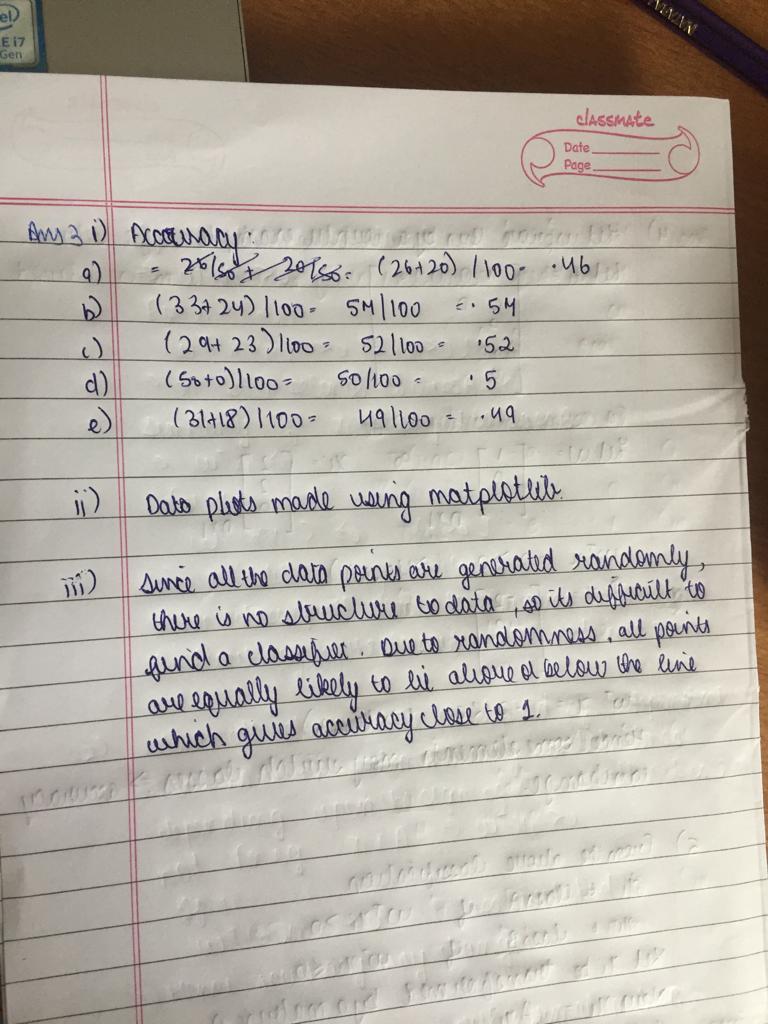 el
E i7
Gen
NATAR
classmate
Date
Page
Ans 3 i) Accuracy:
a) = 26/50 + 20/50 = (26+20) /100 = .46
b) (33+24) /100 = 54/100 = .54
c) (29+23) /100 = 52/100 = .52
d) (50+0) /100 = 50/100 = .5
e) (31+18) /100 = 49/100 = .49
ii) Data plots made using matplotlib.
iii) Since all the data points are generated randomly,
there is no structure to data, so its difficult to
find a classifier. Due to randomness, all points
are equally likely to lie above or below the line
which gives accuracy close to 1.